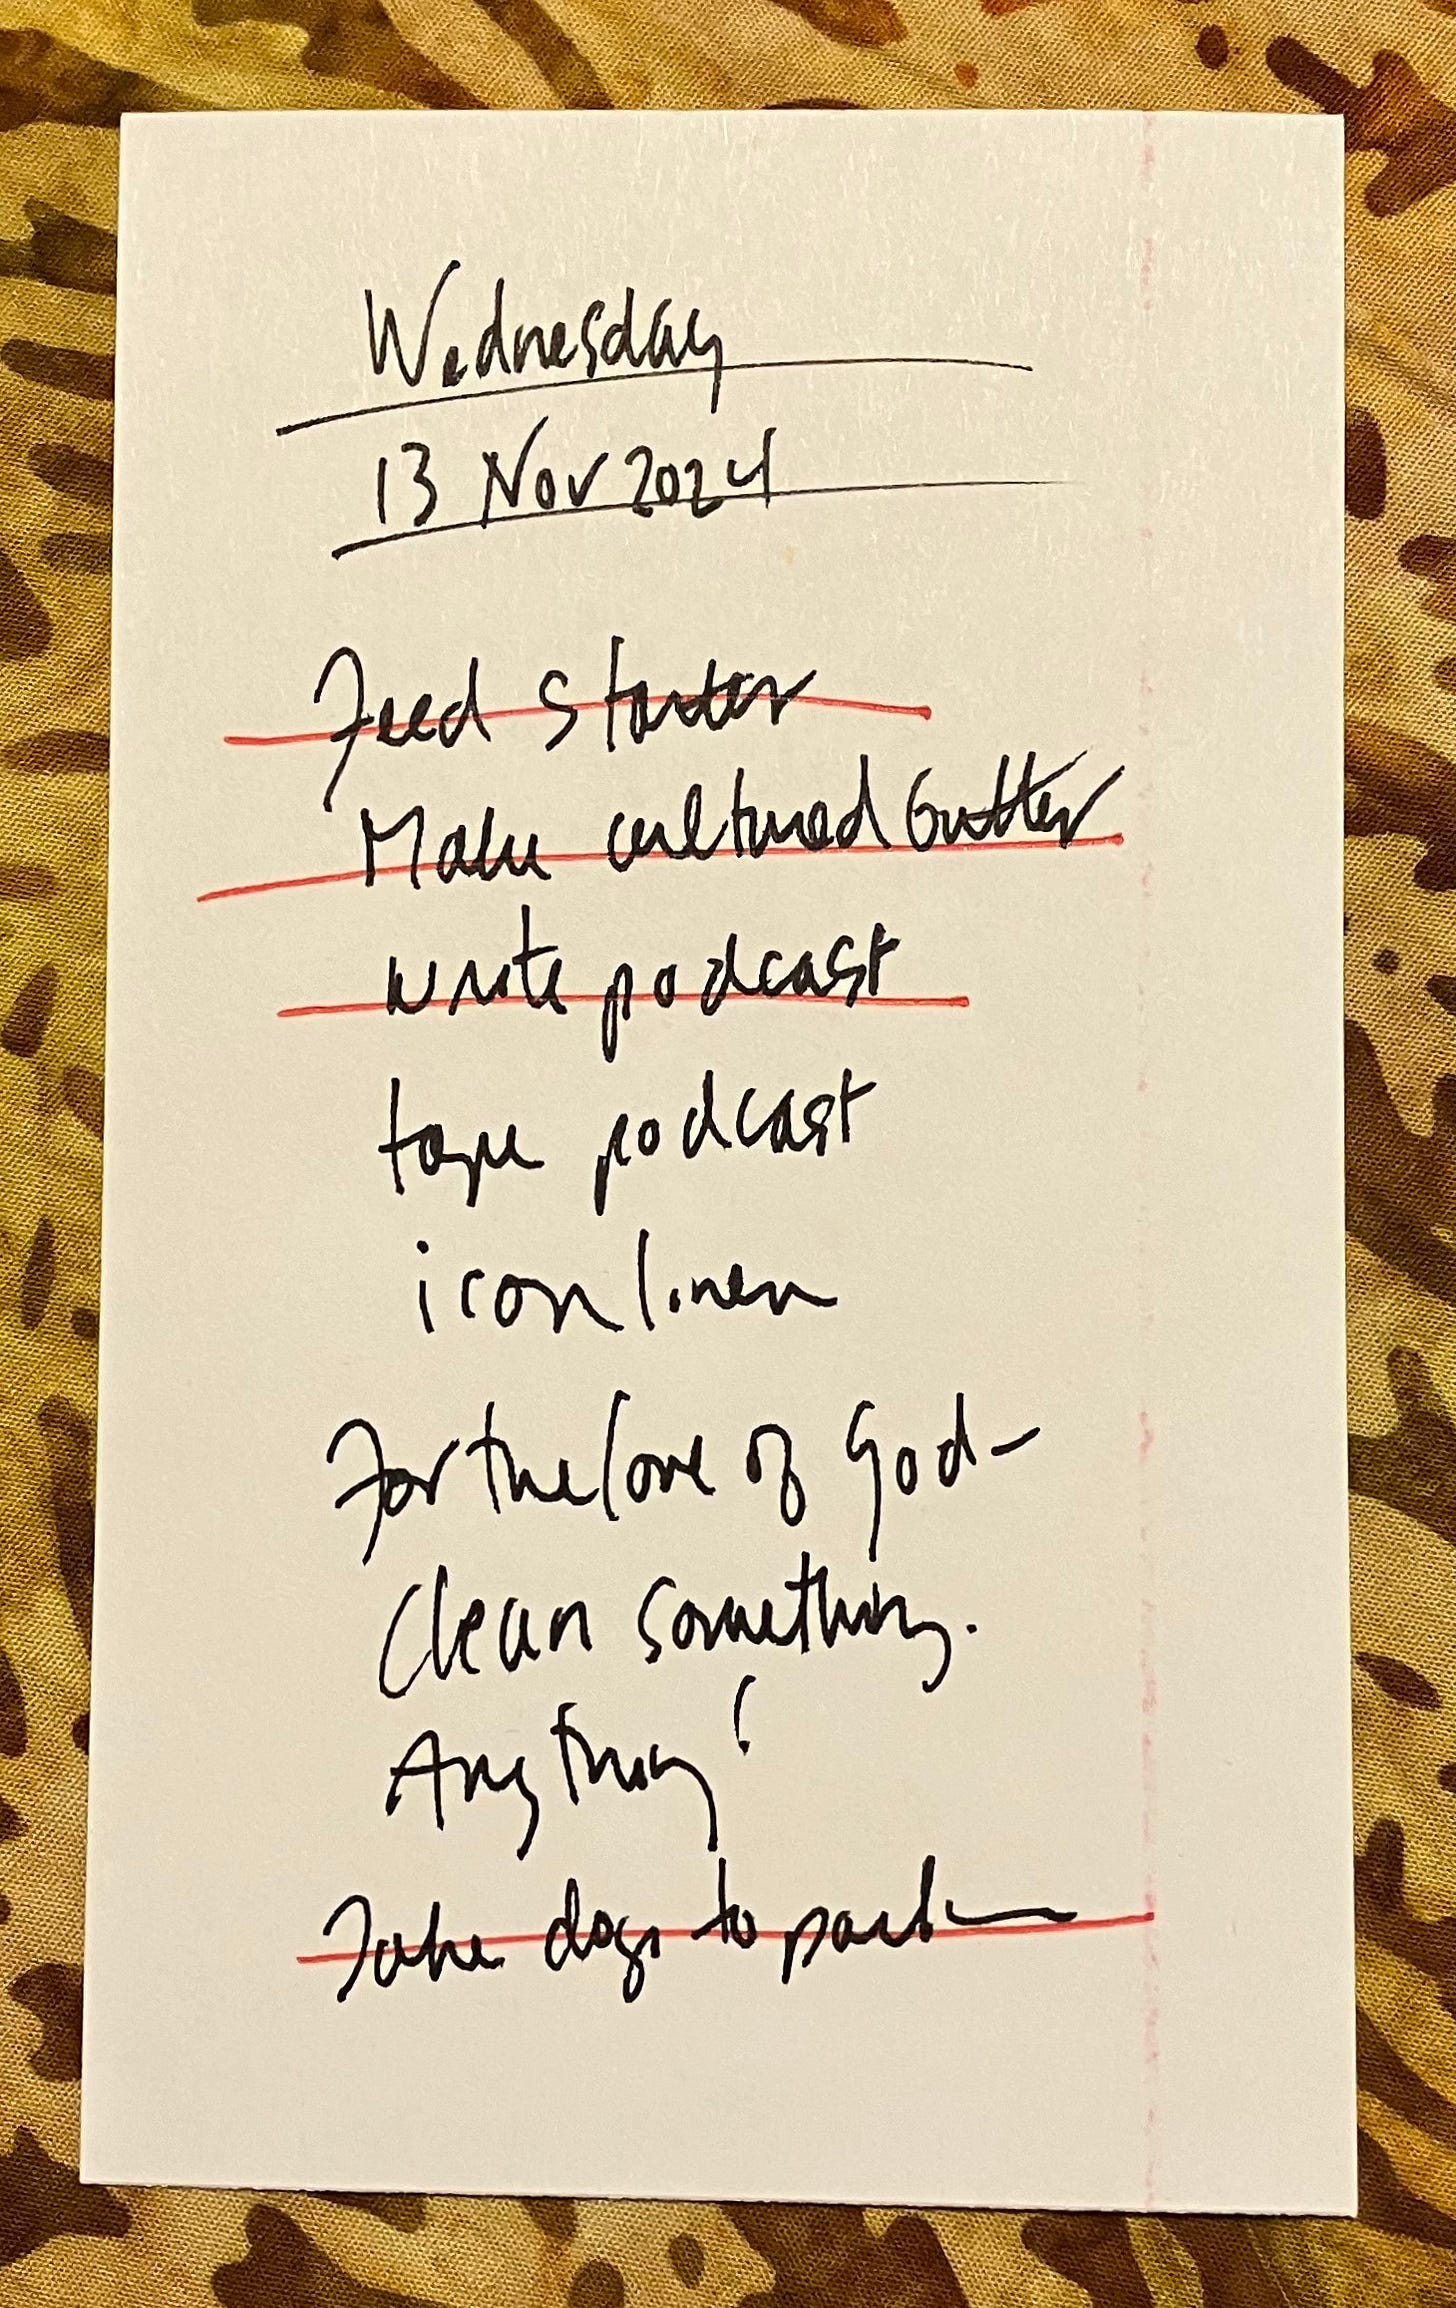 Wednesday
13 Nov 2024
Feed Starter
Make cultured butter
write podcast
tape podcast
icon linen
For the love of God-
Clean something.
Anything!
Take dogs to park